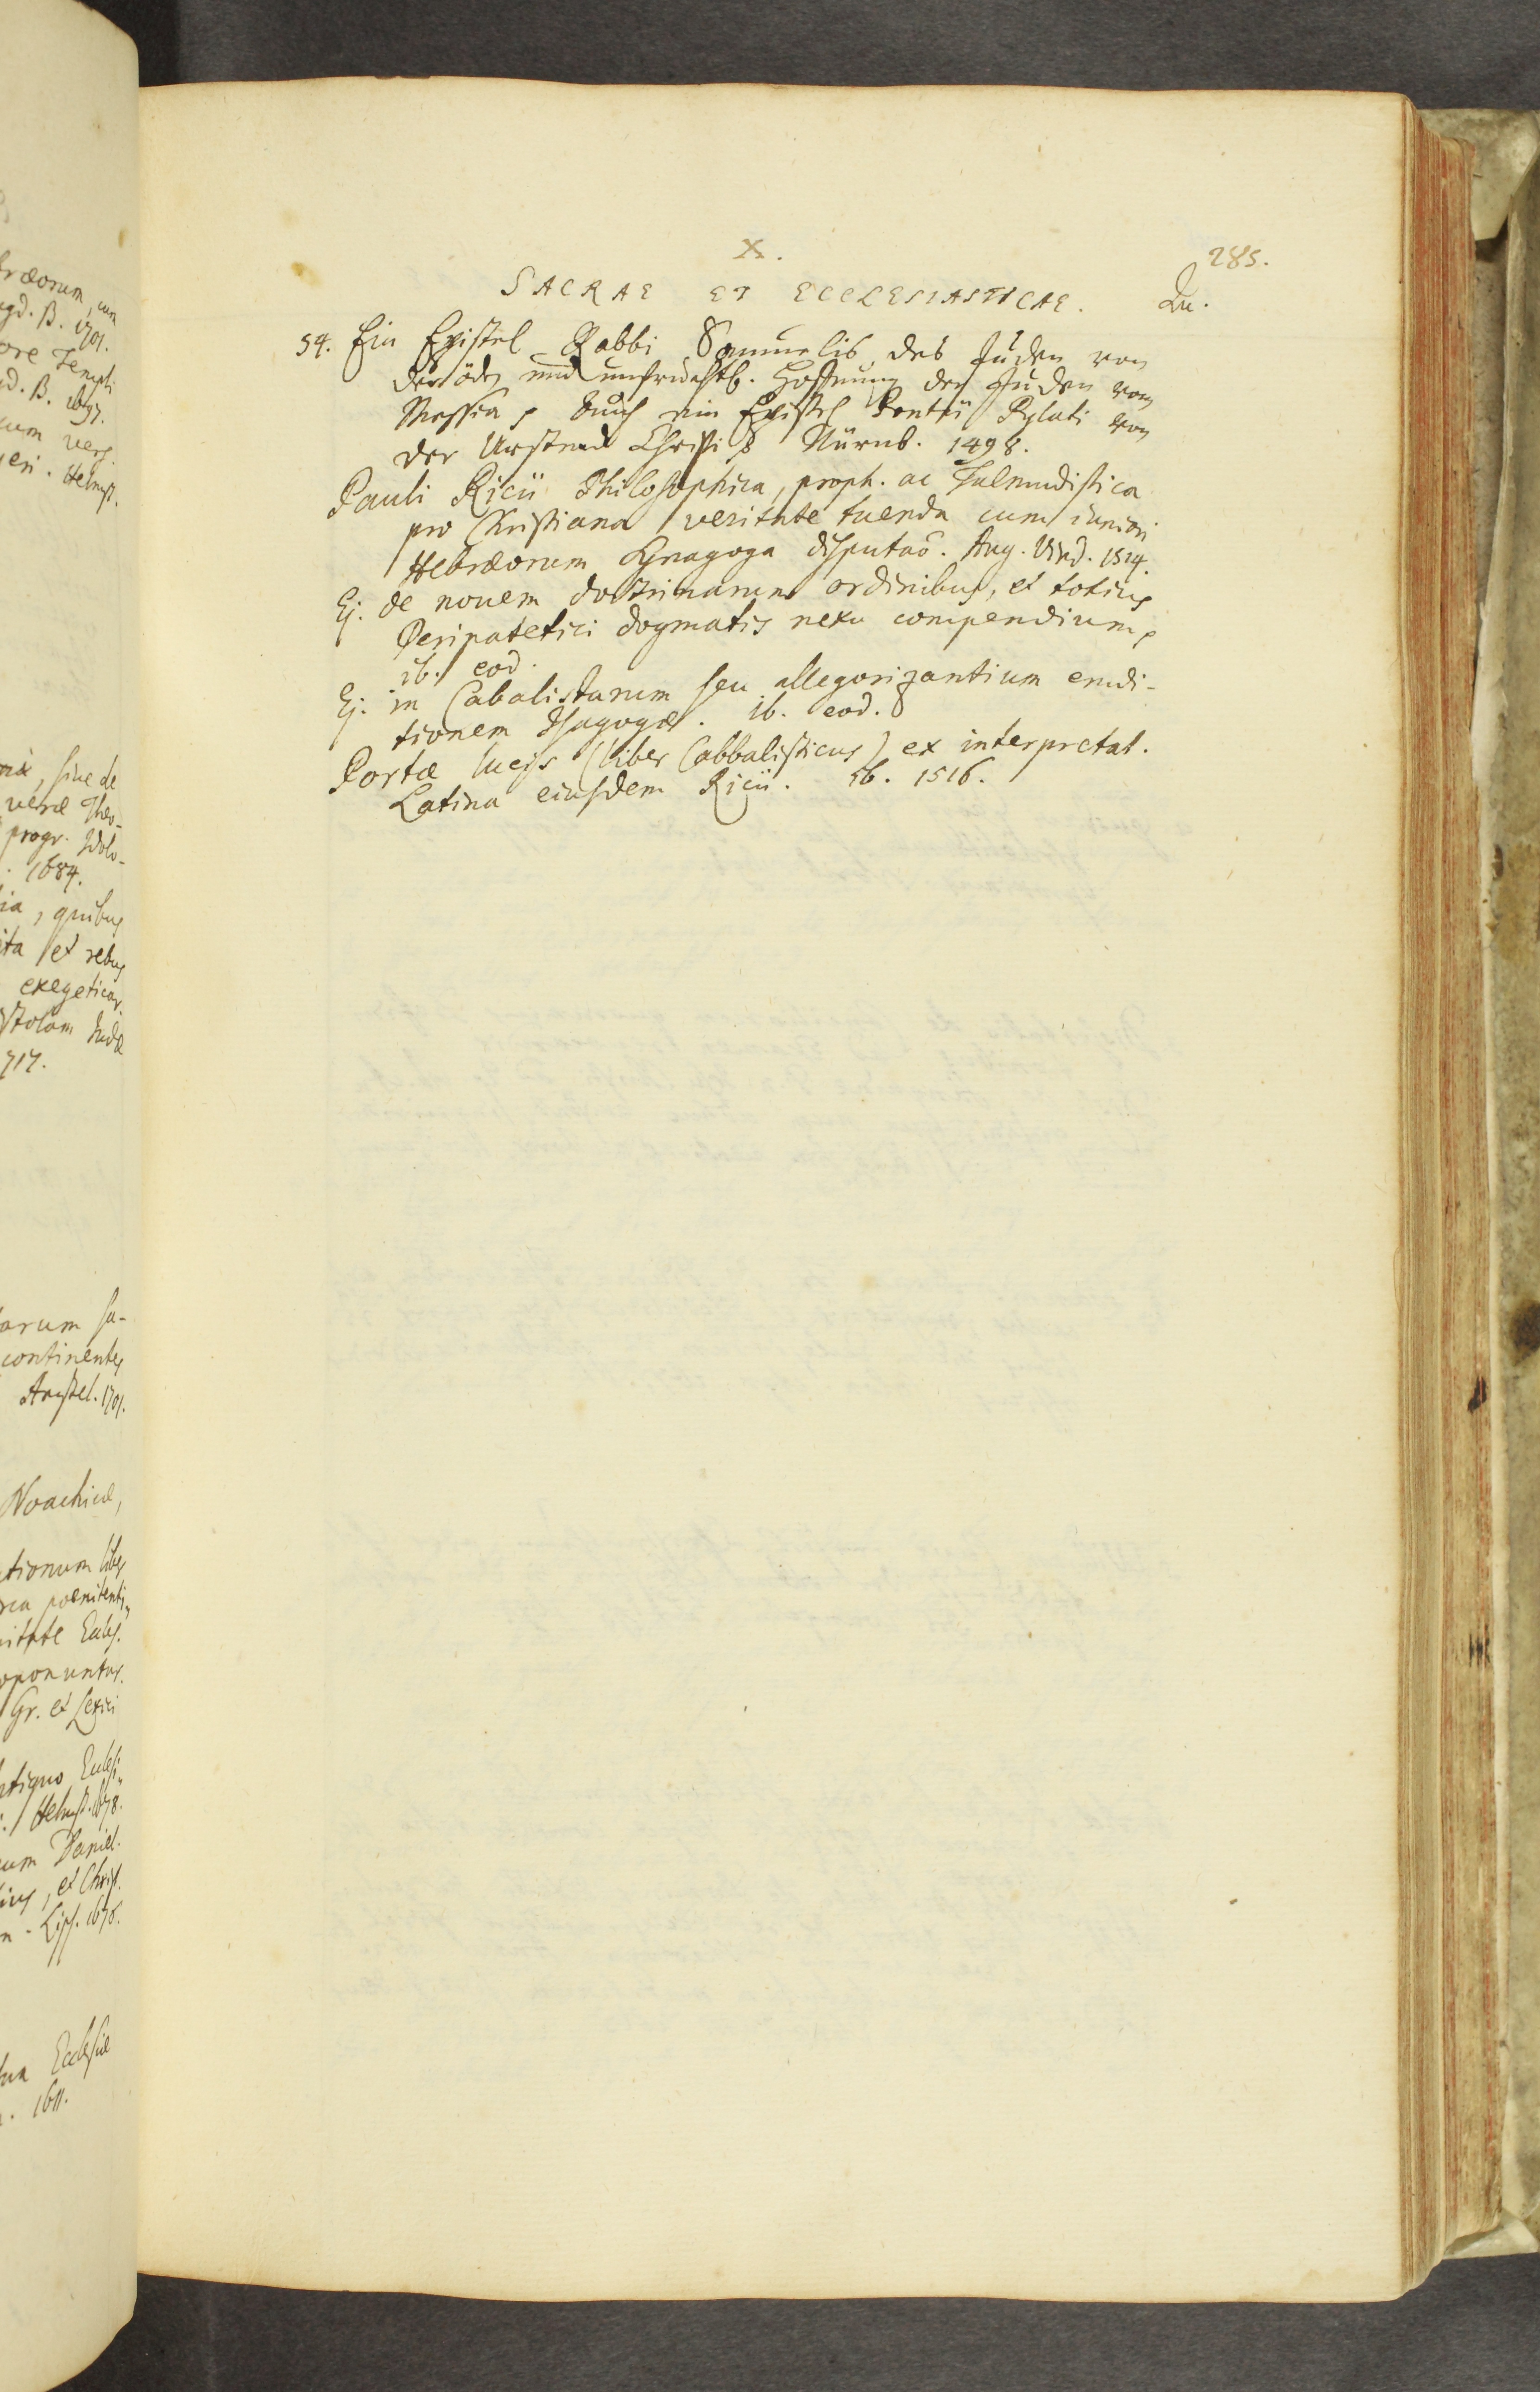 X.
285.
SACRAE ET ECCLESIASTICAE.
Qu.
54. Ein Epistel Rabbi Samuelis des Juden von
der öden und unfruchtb. Hoffnung der Juden vom
Messia, Auch ein Epistel Pontii Pylati von
der Urstend Christi p Nürnb. 1498.
Pauli Ricii Philosophica, proph. ac Talmudistica
pro Christiana veritate tuenda cum iuniori
Hebræorum synagoga disputaõ. Aug. Vind. 1514.
Ej. de novem doctrinarum ordinibus, et totius
Peripatetici dogmatis nexu compendium,
ib. eod.
Ej. in Cabalistarum seu allegorizantium erudi-
tionem Isagogæ. ib. eod.
Portæ lucis (liber Cabbalisticus) ex interpretat.
Latina eiusdem Ricii. ib. 1516.
bræorum, cum
ugd. B. 1701.
ore Templi
gd. B. 1697.
cum vers.
eri. Helmst.
, sive de
veræ Theo-
progr. Wolo-
. 1684.
ia, quibus
ita et rebus
exegeticar.
stolam Judæ
717.
arum sa-
continentes
Amstel. 1701.
Noachicæ,
tionum liber
poenitenti
itate Eccles.
oponuntur.
Gr. et Lexici
antiquo Eccles
: Helmst. 1678.
cum Daniel.
ius, et Christ.
n. Lips. 1676.
Ecclesiæ
. 1611.